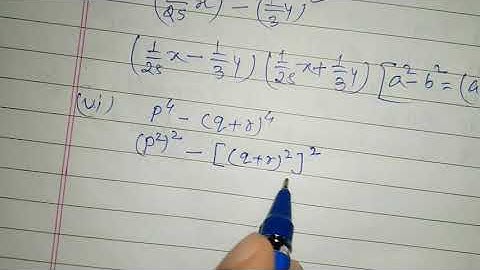 (1/25 x) - (1/3 y)²
(1/25 x - 1/3 y) (1/25 x + 1/3 y) [a² - b² = (a
(vi) p⁴ - (q+r)⁴
(p²)² - [(q+r)²]²